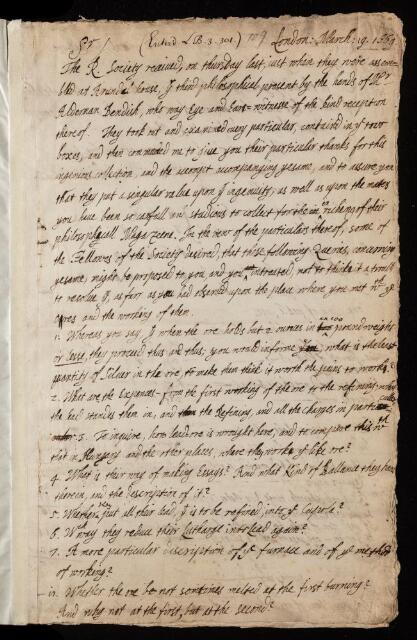 Sr / (Entred LB. 3. 301.) 109 London: March: 19. 1669
The R. Society received, on thursday last, just when they were assem-
bled at Arundel house, yr third philosophical present by the hands of Mr
Alderman Bendish, who may Eye and Eare-witnesse of the kind reception
thereof. They took out and examined every particular, contained in yr two
boxes, and then commanded me to give you their particular thanks for this
ingenious collection, and the accompt accompanying ye same, and to assure you
that they put a singular value upon yr ingenuity, as well as upon the mater
you have been so carefull and studious to collect for the inriching of their
philosophicall Magazeene. In the view of the particulars thereof, some of
the Fellows of the Society desired, that these following Queries, concerning
ye same, might be proposed to you, and you intreated, not to thinke it a trouble
to resolve ym, as farr as you had observed upon the place where you met wth ye
ores and the working of them.
1. Whereas you say, yt when the ore holds but 2 ounces in 100 pound weight
or lesse, they proceed thus and thus; you would informe, what is the least
quantity of Silver in the ore, to make them think it worth the pains to work?
2. What are the Expences from the first working of the ore to the refining, what
the lead stands them in, and the Refining, and all the charges in particular
3. To inquire, how lead ore is wrought here, and to compare this wth
that in Hungary and the other places, where they worke ye like ore?
4. What is their way of making Essays? And what kind of Ballance they have
therein, and the description of it?
5. Whether they put all their lead, yt is to be refined, into ye Cupole?
6. W they reduce their Litharge into lead again?
7. A more particular description of ye furnace and of ye method
of working?
Whether the ore be not somtimes melted at the first burning?
And why not at the first, but at the second?